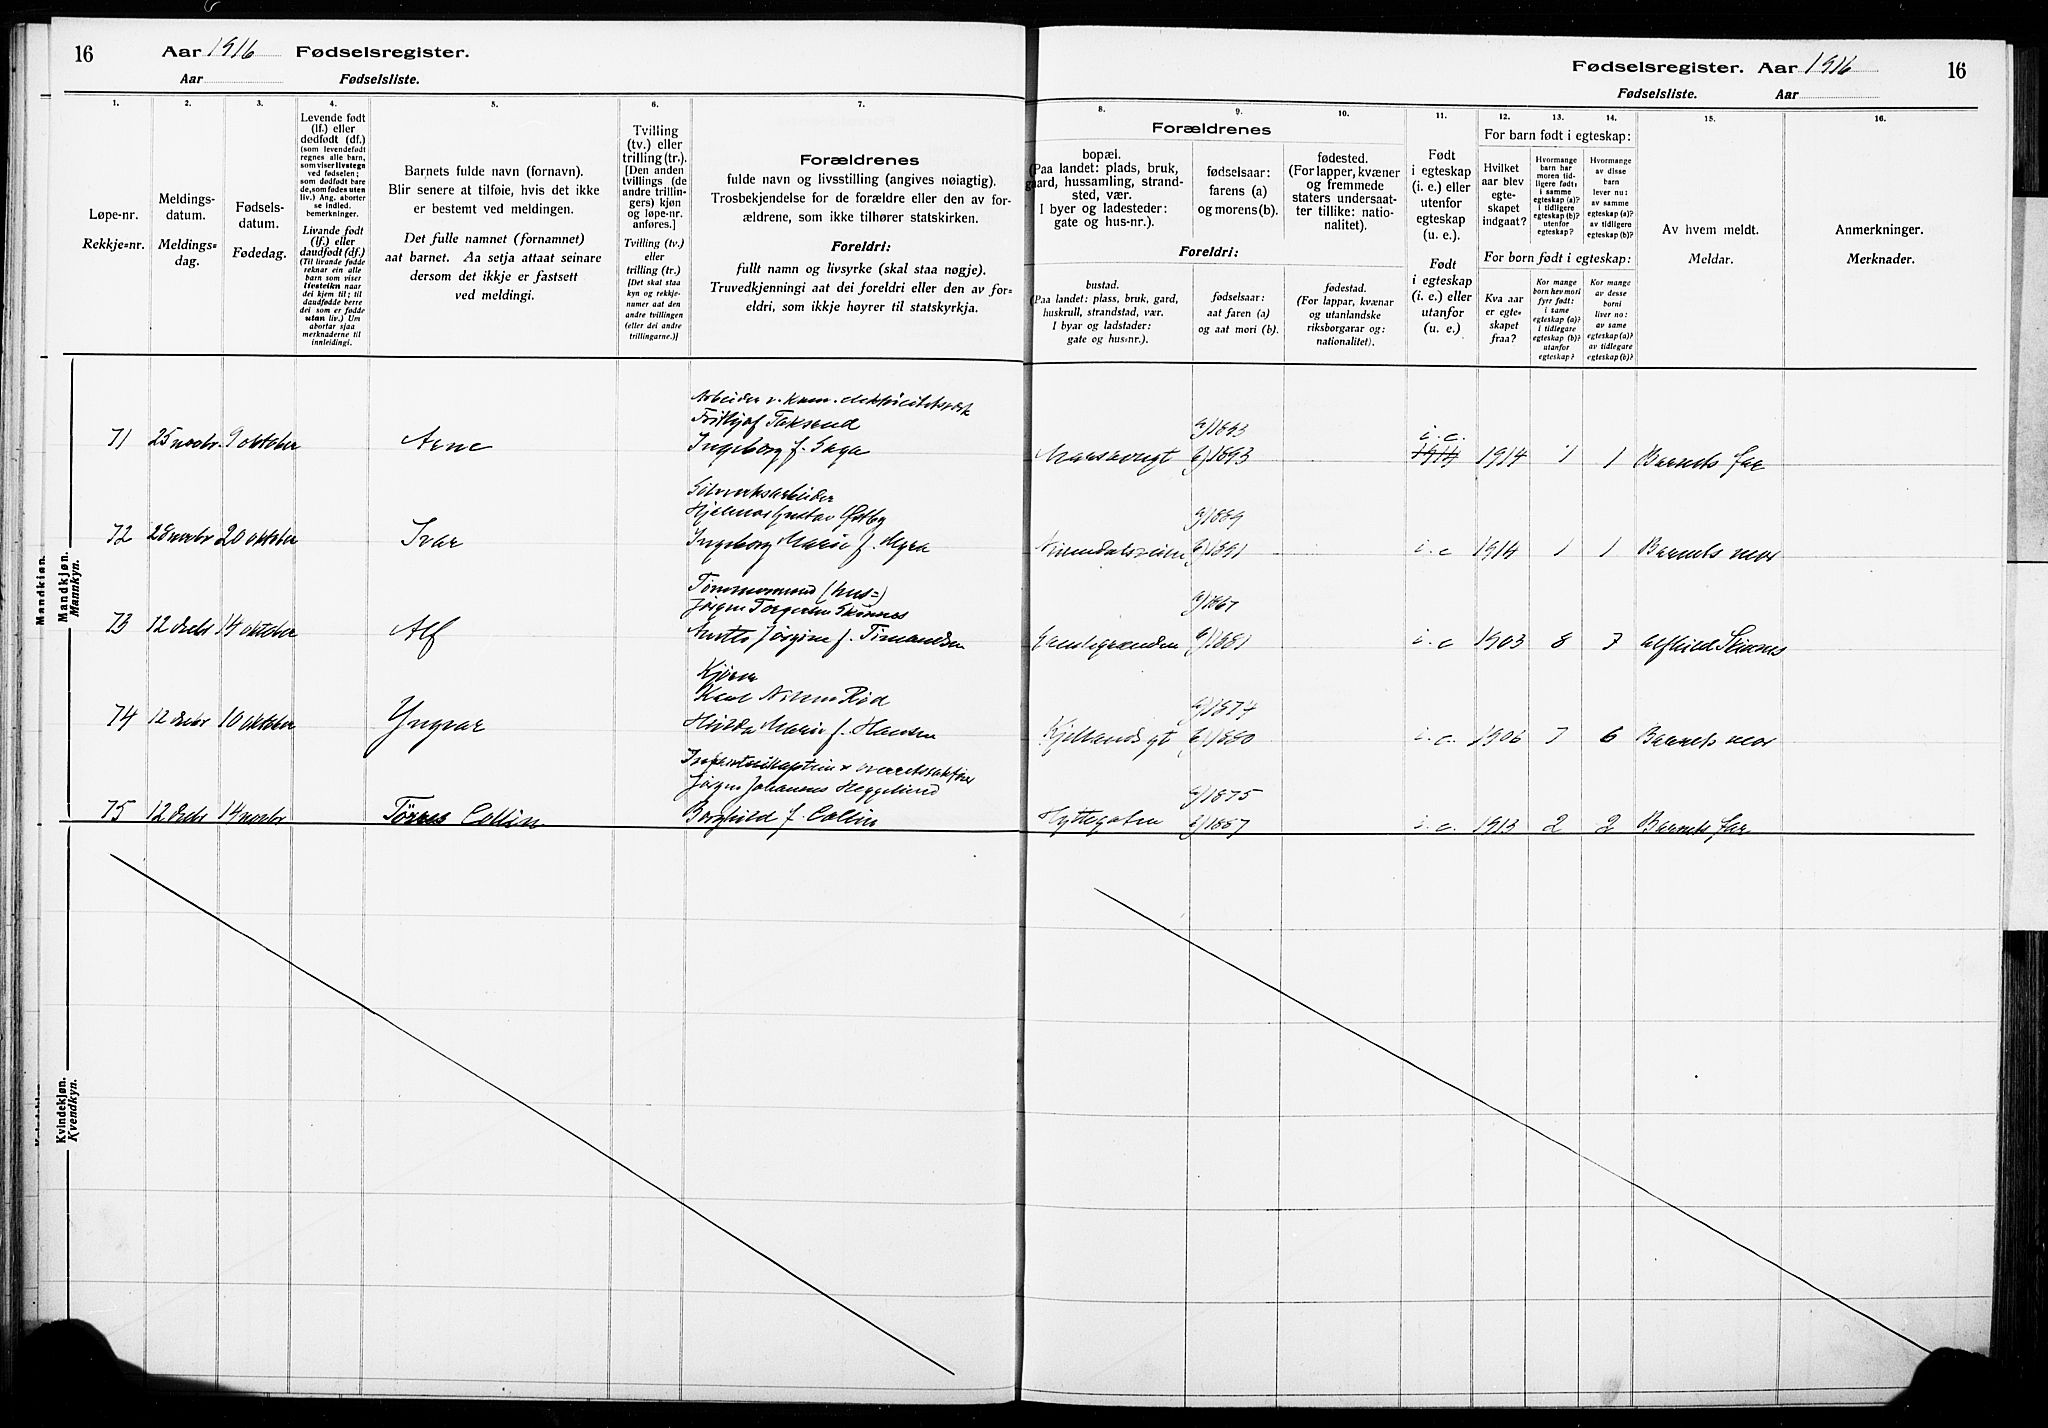 16 Aar 1916 Fødselsregister.
Aar Fødselsliste.
Fødselsregister. Aar 1916 16
Fødselsliste. Aar
1. 2. 3. 4. 5. 6. 7. 8. 9. 10. 11. 12. 13. 14. 15. 16.
Løpe-nr.
Rekkje=nr.
Meldings-
datum.
Meldings=
dag.
Fødsels-
datum.
Fødedag.
Levende født
(lf.) eller
dødfødt (df.)
(som levendefødt
regnes alle barn,
som viser livstegn
ved fødselen;
som dødfødt bare
de, som fødes uten
liv.) Ang. aborter
se indled.
bemerkninger.
Livande født
(lf.) eller
daudfødt (df.)
(Til livande fødde
reknar ein alle
barn som viser
livsteikn naar
dei kjem til; til
daudfødde berre
dei som er fødde
utan liv.) Um
abortar sjaa
merknaderne til
innleidingi.
Barnets fulde navn (fornavn).
Blir senere at tilføie, hvis det ikke
er bestemt ved meldingen.
Det fulle namnet (fornamnet)
aat barnet. Aa setja attaat seinare
dersom det ikkje er fastsett
ved meldingi.
Tvilling
(tv.) eller
trilling (tr.).
[Den anden
tvillings (de
andre trillin-
gers) kjøn
og løpe-nr.
anføres.]
Tvilling (tv.)
eller
trilling (tr.)
[Det skal staa
kyn og rekkje=
numer aat den
andre tvillingen
(eller dei andre
trillingarne.)]
Forældrenes
fulde navn og livsstilling (angives nøiagtig).
Trosbekjendelse for de forældre eller den av for-
ældrene, som ikke tilhører statskirken.
Foreldri:
fullt namn og livsyrke (skal staa nøgje).
Truvedkjenningi aat dei foreldri eller den av for=
eldri, som ikkje høyrer til statskyrkja.
Forældrenes
bopæl.
(Paa landet: plads, bruk,
gaard, hussamling, strand-
sted, vær.
I byer og ladesteder:
gate og hus-nr.).
fødselsaar:
farens (a)
og morens (b).
fødested.
(For lapper, kvæner
og fremmede
staters undersaat-
ter tillike: natio-
nalitet).
Foreldri:
bustad.
(Paa landet: plass, bruk, gard,
huskrull, strandstad, vær.
I byar og ladstader:
gate og hus=nr.).
fødselsaar:
aat faren (a)
og aat mori (b).
fødestad.
(For lappar, kvænar
og utanlandske
riksborgarar og:
nationalitet).
Født
i egteskap
(i. e.) eller
utenfor
egteskap
(u. e.).
Født
i egteskap
(i. e.) eller
utanfor
(u. e.)
For barn født i egteskap:
Hvilket
aar blev
egte-
skapet
indgaat?
Hvormange
barn har
moren tid-
ligere født:
i samme
egteskap (a)?
i tidligere
egteskap (b)?
utenfor
egteskap?
Hvormange
av disse
barn
lever nu:
av samme
egteskap (a)?
av tidligere
egteskap (b)?
For born født i egteskap:
Kva aar
er egte=
skapet
fraa?
Kor mange
born hev mori
fyrr født:
i same
egteskap (a)?
i tidlegare
egteskap (b)?
utanfor
egteskap?
Kor mange
av desse
borni
liver no:
av same
egteskap (a)?
av tidlegare
egteskap (b)?
Av hvem meldt.
Meldar.
Anmerkninger.
Merknader.
Mandkjøn.
Mandkjøn.
Mannkyn.
71 25 novbr. 9 oktober Arne
Fritthjof
Ingeborg f. Saga
a) 1893
b) 1893
i. e.
1914 1914 1 1 Barnets far
72 28 novbr 20 oktober Ivar
Sølvverksarbeider
Hjelmar Gustav Østby
Ingeborg Marie f. Myra
Numedalsveien a) 1889
b) 1891 i. e 1914 1 1 Barnets mor
73 12 decbr 14 oktober Alf
Tømmermand (hus=)
Jørgen Torgersen Skonnes
Jørgine f.
a) 1867
b) 1881 i. e 1903 8 7
74 12 decbr 10 oktober Yngvar
Kjører
Karl Nilsen Rød
Hilda Marie f. Hansen
Kjellands gt a) 1874
b) 1880 i. e. 1906 7 6 Barnets mor
75 12 decbr 14 novbr Tørres Collin
Infanterikaptein & overretssakfører
Jørgen Johannes Heggelund
Borghild f. Collin
Hyttegaten a) 1875
b) 1887 i. e. 1913 2 2 Barnets far
Kvindekjøn.
Kvendkyn.